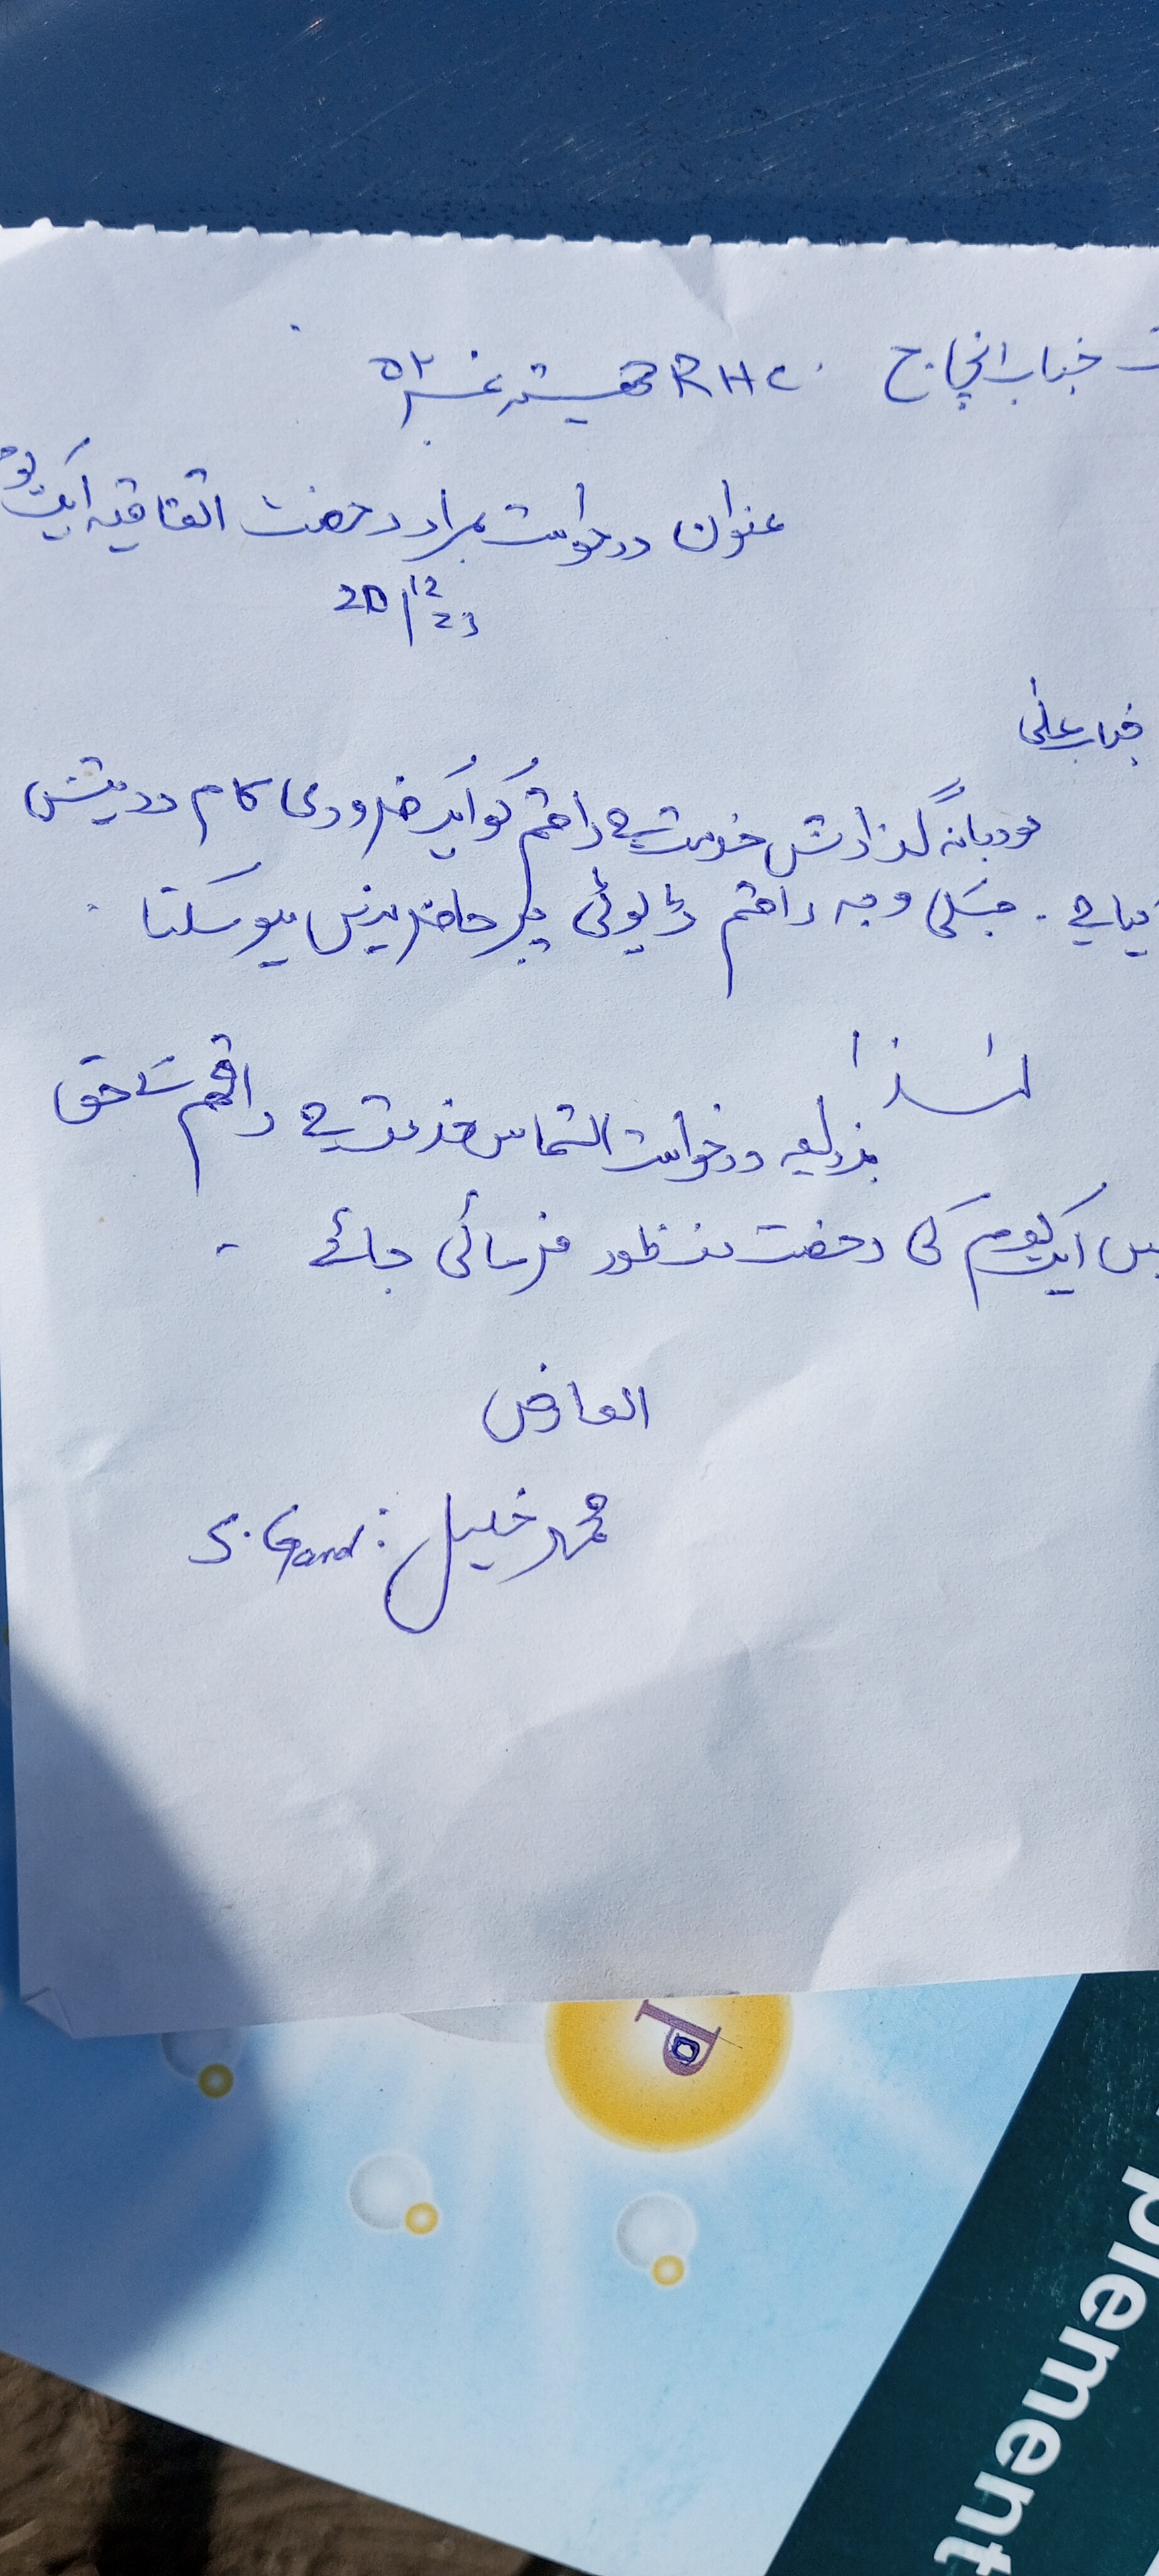 جناب انچارج RHC
عنوان درخواست بمراد رخصت اتفاقیہ ایک یوم
20/12 23
جناب عالی
مودبانہ گذارش خدمت ہے راقم کو ایک ضروری کام درپیش
آیا ہے۔ جسکی وجہ راقم ڈیوٹی پر حاضر نہیں ہو سکتا۔
لہذا
بذریعہ درخواست التماس خدمت ہے راقم کے حق
میں ایک یوم کی رخصت منظور فرمائی جائے۔
العارض
محمد خلیل: S. Gard
P
plement